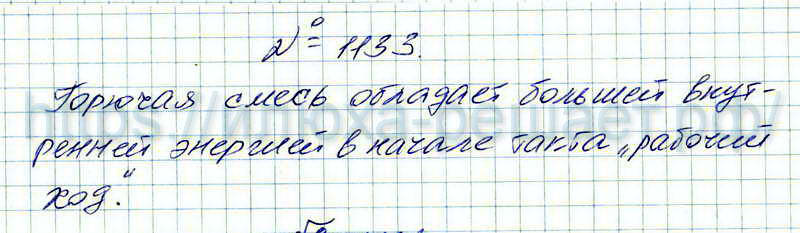 № 1133.
Горючая смесь обладает большей внут-
ренней энергией в начале такта „рабочий
ход."